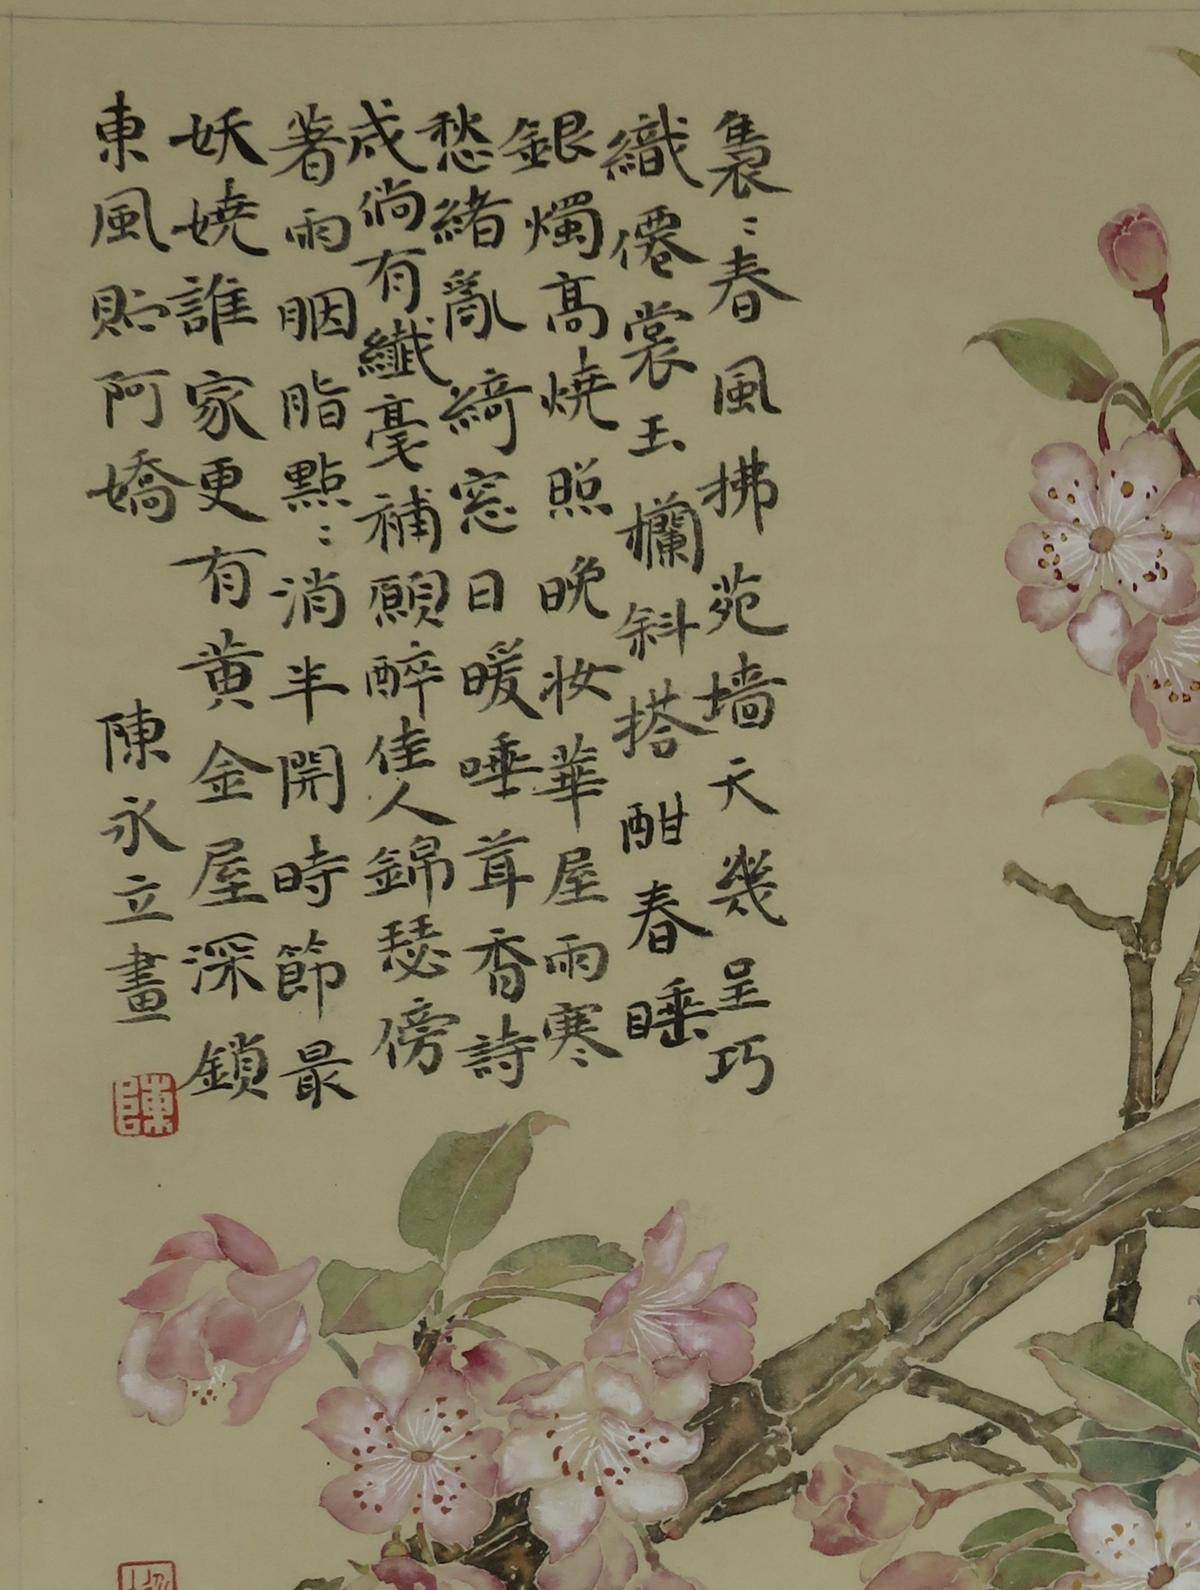 裊：春風拂苑墙天幾呈巧
織僊裳玉欄斜搭酣春睡
銀燭高燒照晚妝華屋雨寒
愁緒亂綺窓日暖唾茸香詩
成倘有纖毫補願醉佳人錦瑟傍
著雨胭脂點：消半開時節最
妖嬈誰家更有黄金屋深鎖
東風貯阿嬌
陳永立畫
陳